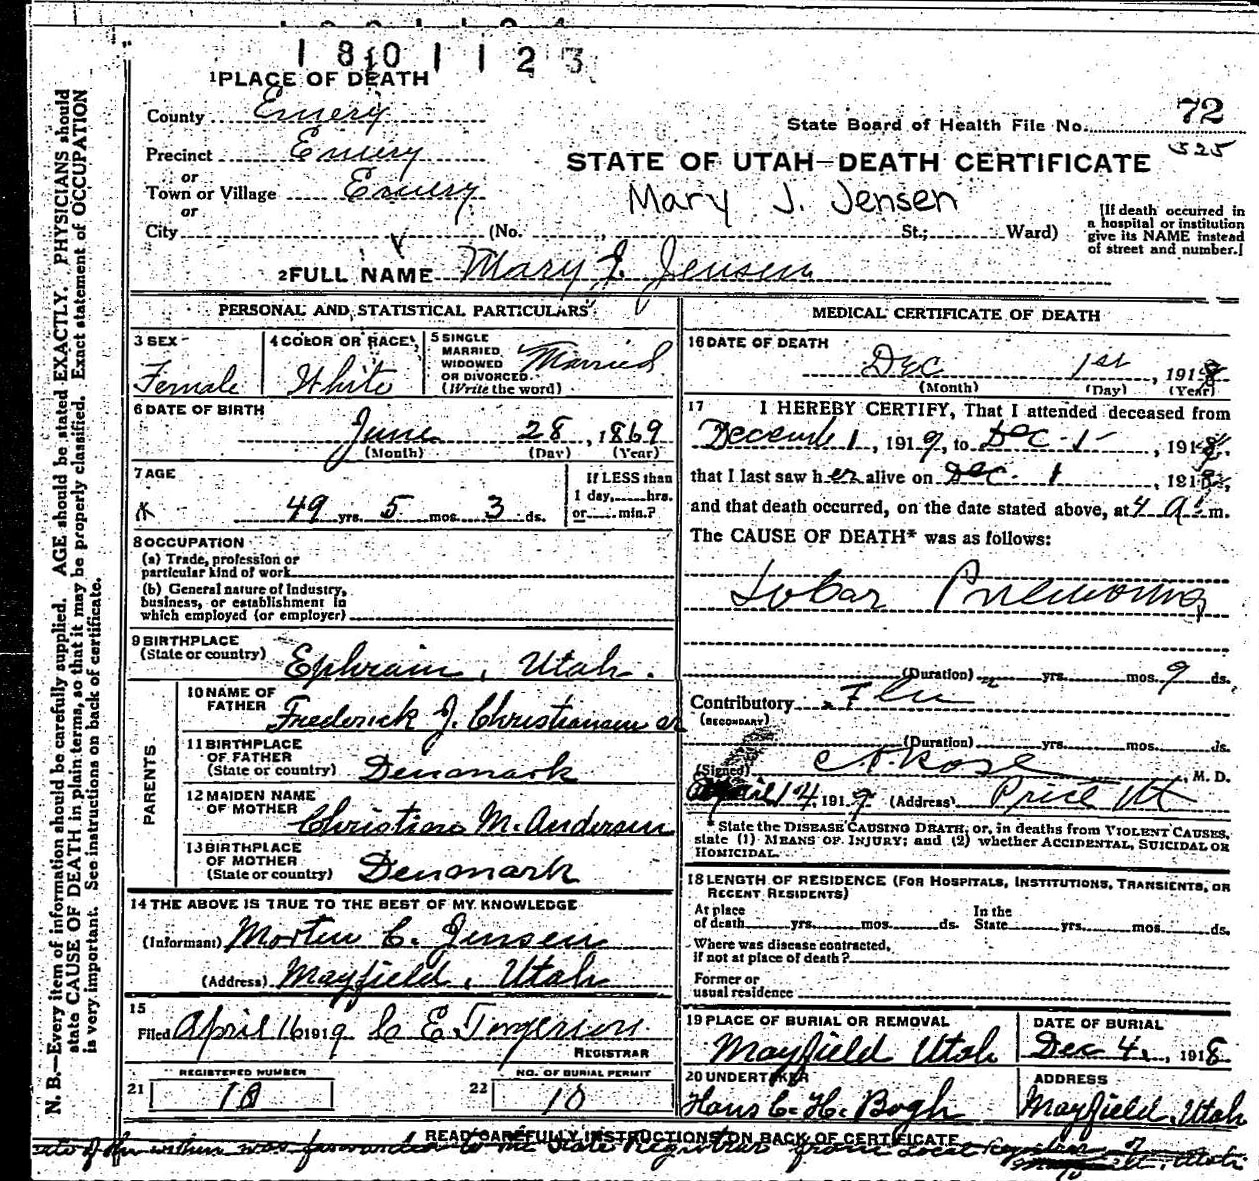 1801123
1 PLACE OF DEATH
County Emery
State Board of Health File No. 72
525
Precinct Emery
or
STATE OF UTAH—DEATH CERTIFICATE
Town or Village Emery
or
Mary J. Jensen
City (No. , St.; Ward)
[If death occurred in
a hospital or institution
give its NAME instead
of street and number.]
2 FULL NAME Mary J. Jensen
PERSONAL AND STATISTICAL PARTICULARS
3 SEX
Female
4 COLOR OR RACE
White
5 SINGLE
MARRIED,
WIDOWED
OR DIVORCED.
(Write the word)
Married
6 DATE OF BIRTH
June 28, 1869
(Month) (Day) (Year)
7 AGE
49 yrs. 5 mos. 3 ds.
If LESS than
1 day, hrs.
or min.?
8 OCCUPATION
(a) Trade, profession or
particular kind of work
(b) General nature of Industry,
business, or establishment in
which employed (or employer)
9 BIRTHPLACE
(State or country) Ephraim, Utah.
PARENTS
10 NAME OF
FATHER
Frederick J. Christiansen sr
11 BIRTHPLACE
OF FATHER
(State or country) Denmark
12 MAIDEN NAME
OF MOTHER
Christina M. Andersen
13 BIRTHPLACE
OF MOTHER
(State or country) Denmark
14 THE ABOVE IS TRUE TO THE BEST OF MY KNOWLEDGE
(Informant) Morten C. Jensen
(Address) Mayfield, Utah
15
Filed April 16 1919
REGISTRAR
21 REGISTERED NUMBER
22 NO. OF BURIAL PERMIT
10
MEDICAL CERTIFICATE OF DEATH
16 DATE OF DEATH
Dec 1st, 1918
(Month) (Day) (Year)
17 I HEREBY CERTIFY, That I attended deceased from
1, 1919, to Dec 1, 1918,
that I last saw her alive on Dec. 1, 1918,
and that death occurred, on the date stated above, at 4 A. m.
The CAUSE OF DEATH* was as follows:
Lobar Pneumonia
(Duration) yrs. mos. 9 ds.
Contributory Flu
(SECONDARY)
(Duration) yrs. mos. ds.
(Signed) , M. D.
April 14 1919 (Address) Price Ut
* State the DISEASE CAUSING DEATH, or, in deaths from VIOLENT CAUSES,
state (1) MEANS OF INJURY; and (2) whether ACCIDENTAL, SUICIDAL OR
HOMICIDAL.
18 LENGTH OF RESIDENCE (FOR HOSPITALS, INSTITUTIONS, TRANSIENTS, OR
RECENT RESIDENTS)
At place
of death yrs. mos. ds.
In the
State yrs. mos. ds.
Where was disease contracted,
if not at place of death?
Former or
usual residence
19 PLACE OF BURIAL OR REMOVAL
Mayfield Utah
DATE OF BURIAL
Dec 4, 1918
20 UNDERTAKER
Hans C. H. Bogh
ADDRESS
Mayfield, Utah
READ CAREFULLY INSTRUCTIONS ON BACK OF CERTIFICATE
within was forwarded to the State Registrar from Local Registrar of
N. B.—Every item of information should be carefully supplied. AGE should be stated EXACTLY. PHYSICIANS should
state CAUSE OF DEATH in plain terms, so that it may be properly classified. Exact statement of OCCUPATION
is very important. See instructions on back of certificate.